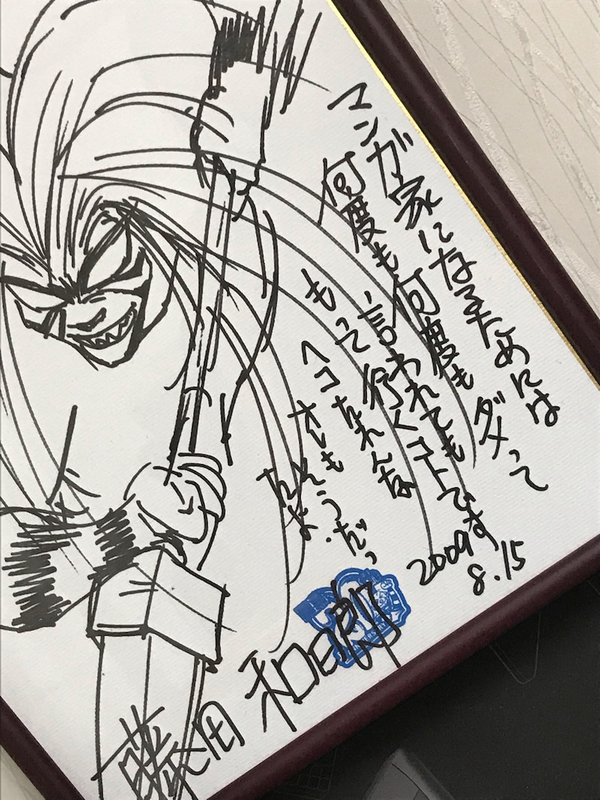 マンガ家になるためには
何度も何度もダメって
言われても
もって行くコトです
ヘコたれんな
オレもそうだっ
たんだよ
2009
8.15
藤田和日郎